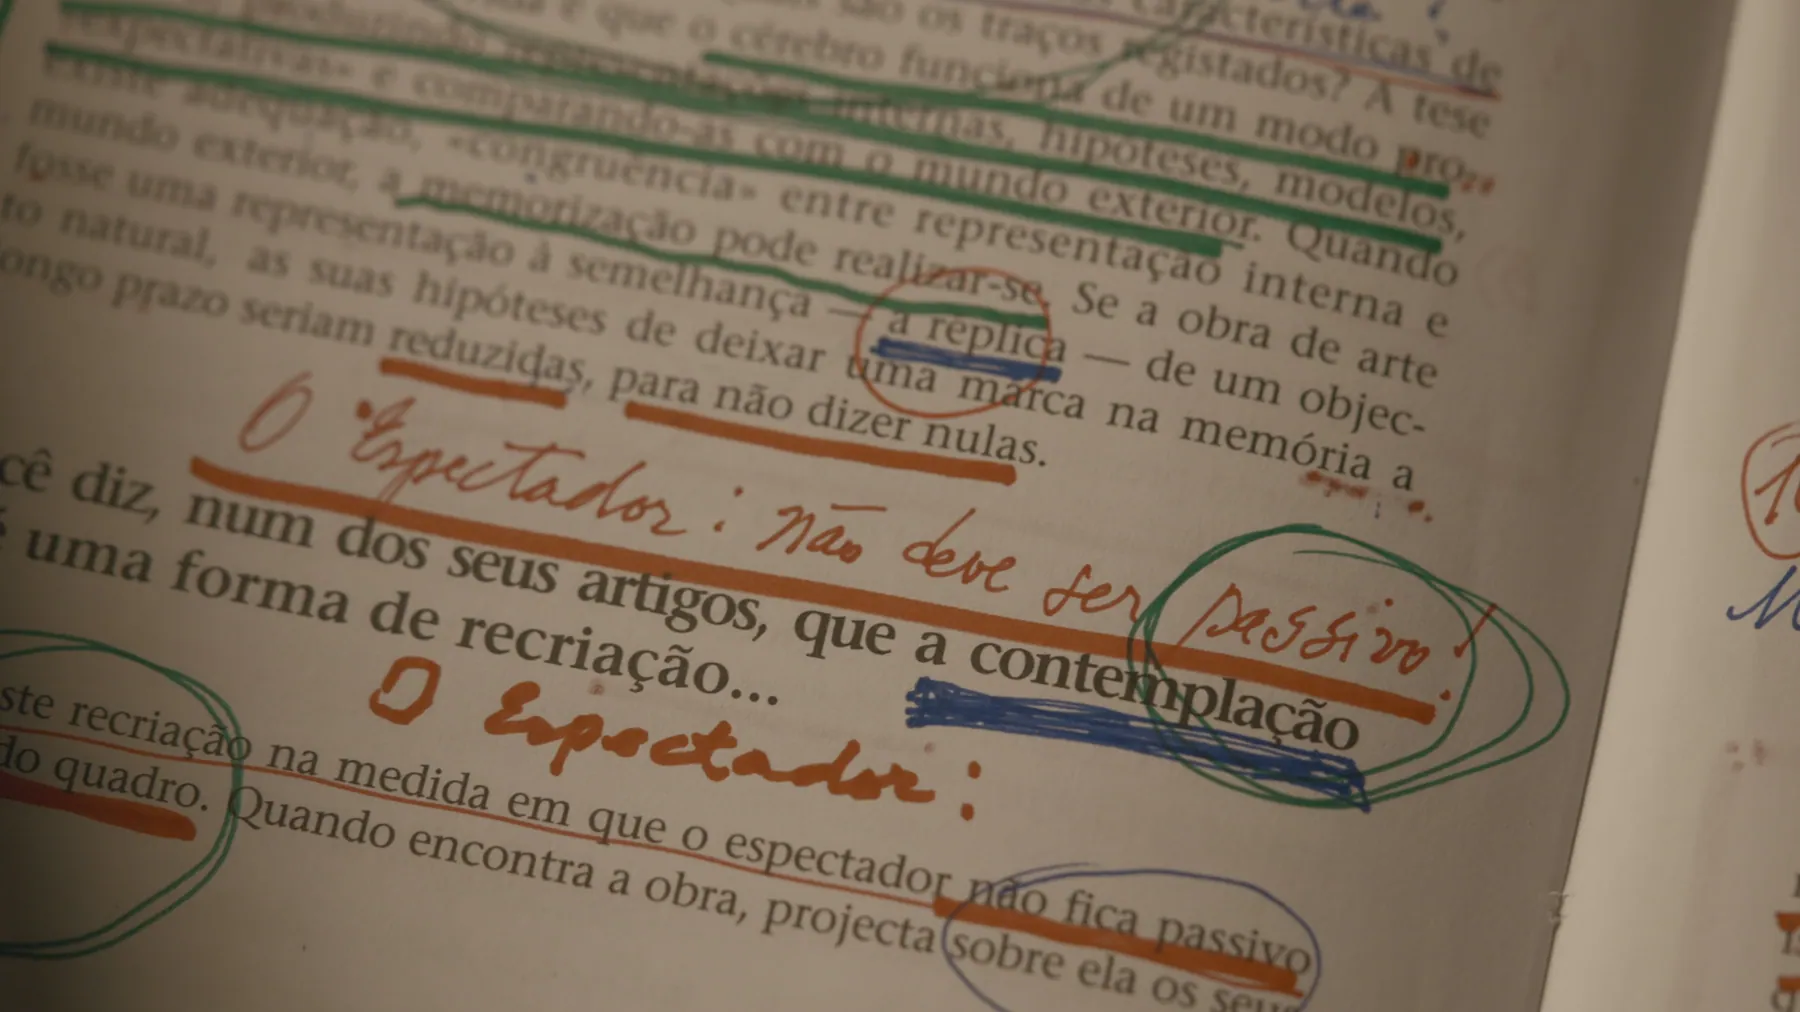 são os traços características de
é que o cérebro funciona registados? A tese
produzindo representações internas, de um modo pro-
«expectativas» e comparando-as com o mundo hipóteses, modelos,
existe adequação, «congruência» entre exterior. Quando
mundo exterior, a memorização pode realizar-se. representação interna e
fosse uma representação à semelhança — a replica Se a obra de arte
to natural, as suas hipóteses de deixar uma marca — de um objec-
ongo prazo seriam reduzidas, para não dizer nulas. na memória a
O Espectador: não deve ser passivo!
cê diz, num dos seus artigos, que a contemplação
é uma forma de recriação...
O Espectador:
ste recriação na medida em que o espectador não fica passivo
do quadro. Quando encontra a obra, projecta sobre ela os seus